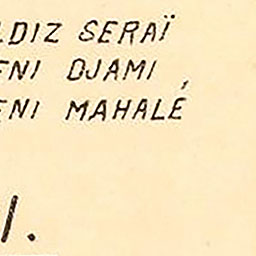 LDIZ SERAÏ
ENI DJAMI
ENI MAHALÉ